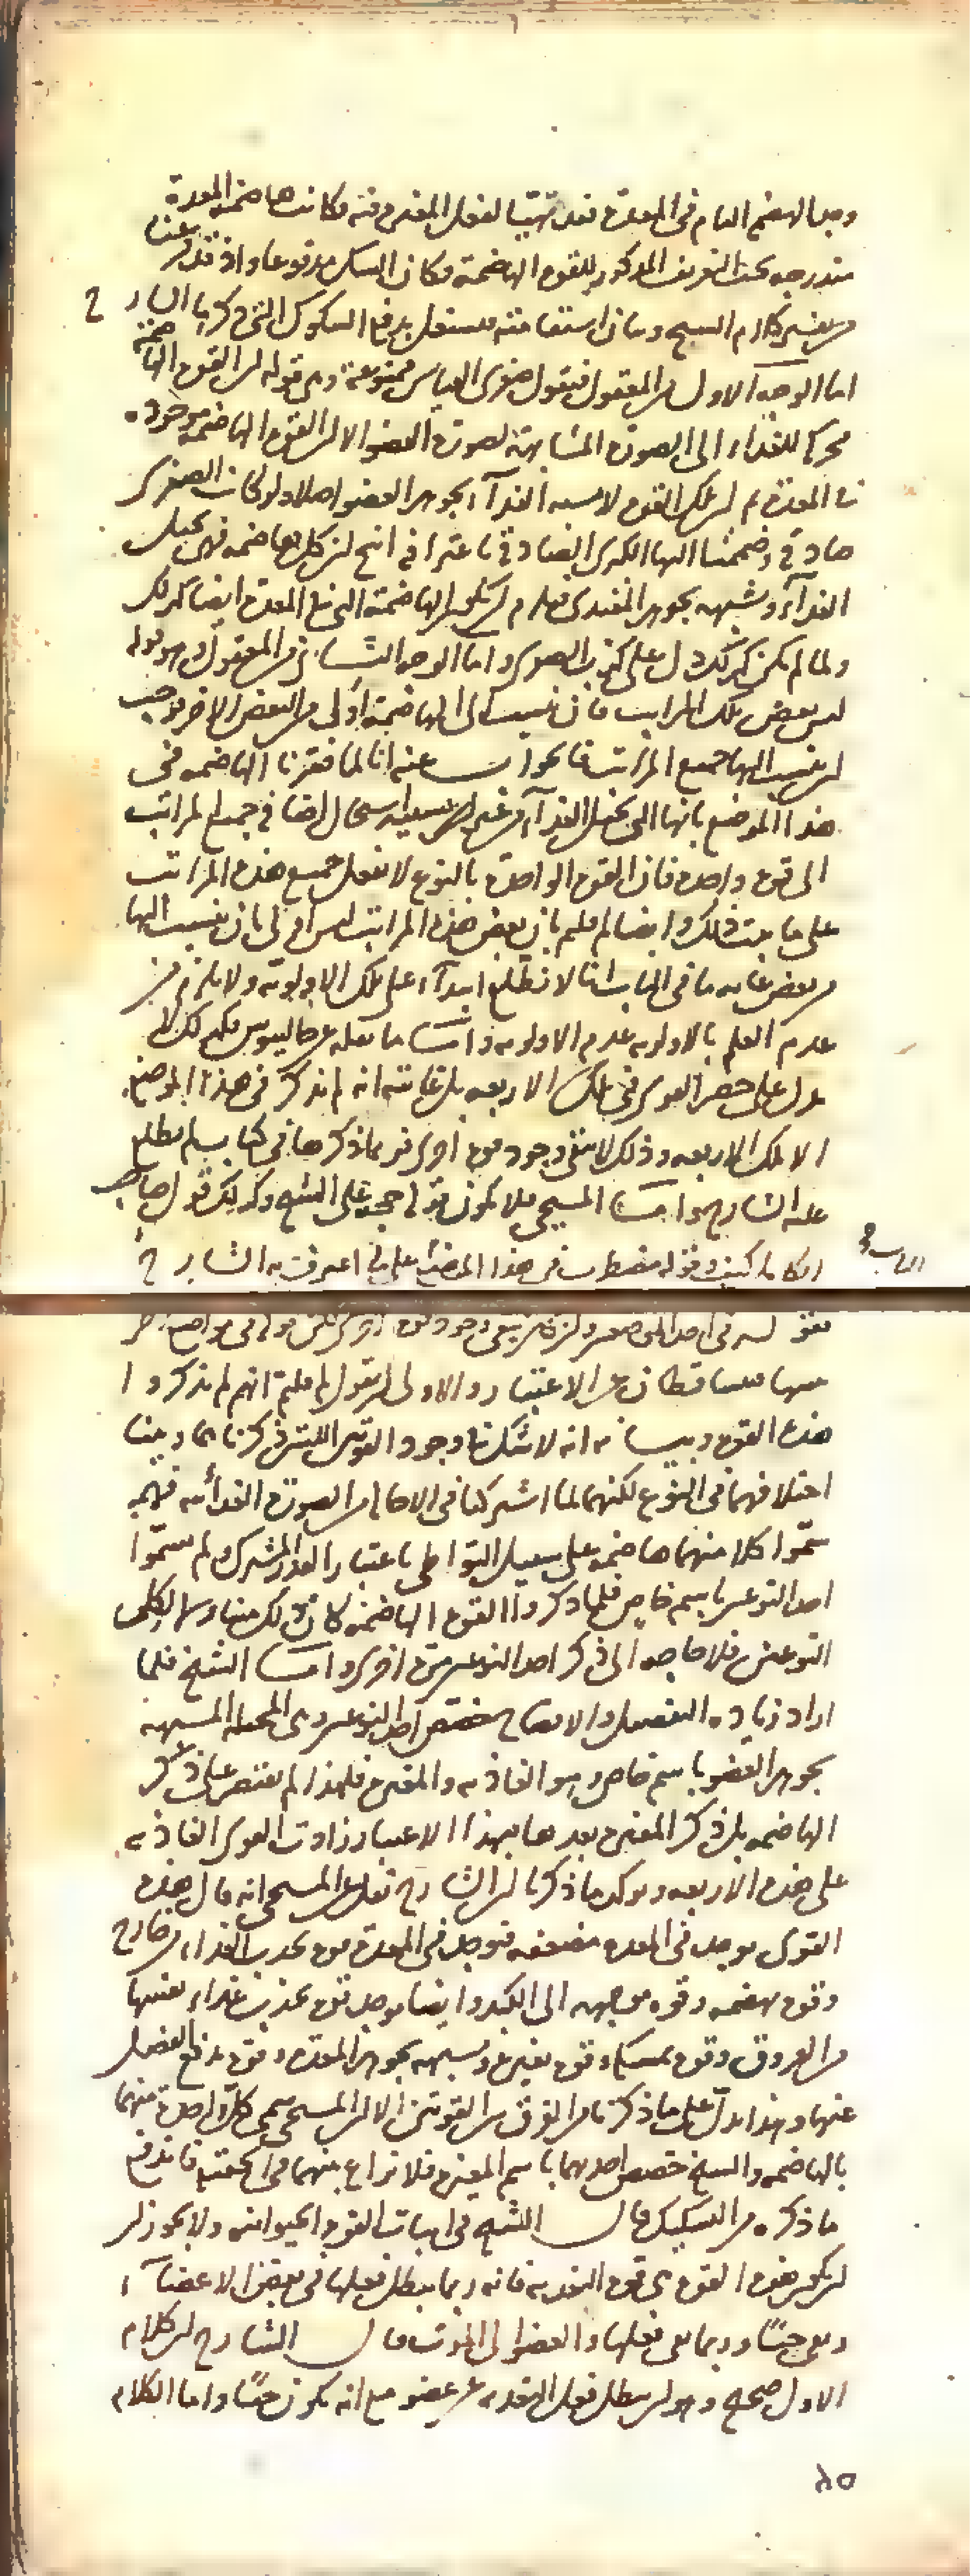 وبعد الهضم التام فى المعدة فقد تهيّا لفعل المغيرة فيه فكانت هاضمة المعدة
مندرجه تحت التعريف المذكور للقوة الهاضمة فكان الشك مدفوعا واذ قد فرغنا
من تفسير كلام الشيخ وبيان استقامته فلنشتغل بدفع الشكوك التى ذكرها الشارح
اما الوجه الاول من المعقول فنقول صغرى القياس ممنوعة وهى قوله ان القوة الهاضمة
محركة للغذاء الى الصورة المشابهة لصورة العضو الا ان القوة الهاضمه موجودة
فى المعدة مع ان تلك القوة لا تشبه الغذآء بجوهر العضو اصلا ولو كانت الصغرى
صادقة وضممنا اليها الكبرى الصادقة باعترافه انتج ان كل هاضمه فهى تحيل
الغذآء وتشبهه بجوهر المغتذى فيلزم ان يكون الهاضمة التى فى المعدة ايضا كذلك
ولما لم يكن كذلك دل على كذب الصغرى واما الوجه الثانى من المعقول وهو قوله
ليس بعض تلك المراتب بان ينسب الى الهاضمة اولى من البعض الاخر فوجب
ان ينسب اليها جميع المراتب فالجواب عنه انا لما فسرنا الهاضمه فى
هذا الموضع بانها التى تحيل الغذآء من غير استحال اضافة جميع المراتب
الى قوة واحدة فان القوة الواحدة بالنوع لا تفعل جميع هذه المراتب
على ما بينت ذلك وايضا لم قلتم بان بعض هذه المراتب ليس اولى بان ينسب اليها
من بعض غايه ما فى الباب انا لا نطلع ابتدآء على تلك الاولوية ولا يلزم من
عدم العلم بالاولويه عدم الاولويه واما ما نقله عن جالينوس فكم لك لا
يدل على حصر القوى فى تلك الاربعه بل غايته انه لم يذكر فى هذا الموضع
الا تلك الاربعه وذلك لا ينفى وجود قوة اخرى فربما ذكرها فى كتاب لم يطلع
عليه الشارح واما المسيحى فلا يكون قوله حجه على الشيخ وكذلك قول صاحب
الكامل كيف وقوله مضطرب فى هذا المعنى على ما اعترف به الشارح
فقوله فى احد الموضعين ان ينفى وجود قوة اخرى وقوله فى مواضع اخر
منها فتساقطان عن الاعتبار والاولى ان نقول لم قلتم انهم لم يذكروا
هذه القوة وبيانه انه لا شك فى وجود القوتين اللتين ذكرناهما وبينا
اختلافهما فى النوع لكنهما لما اشتركتا فى الاحالة من الصورة الغذائيه فهم
سمّوا كلا منهما هاضمه على سبيل التواطى باعتبار القدر المشترك ولم يسمّوا
احد النوعين باسم خاص فلما ذكروا القوة الهاضمه كان ذلك متناولا لكلى
النوعين فلا حاجه الى ذكر احد النوعين مرة اخرى واما الشيخ فلما
اراد زياده التفصيل والايضاح خصص احد النوعين وهى المحيله المشبهه
بجوهر العضو باسم خاص وهو الغاذيه والمغيره فلهذا لم يقتصر على ذكر
الهاضمه بل ذكر المغيره بعدها فبهذا الاعتبار زادت القوى الغاذيه
على هذه الاربعه ويؤكد ما ذكرنا ان الشارح نقل عن المسيحى انه قال هذه
القوى يوجد فى المعده مضعفه فتوجد فى المعدة قوة تجذب الغذاء من خارج
وقوة تهضمه وقوه توجهه الى الكبد وايضا يوجد قوة تجذب غذاء نفسها
من العروق وقوة تمسكه وقوة تغيره وتشبهه بجوهر المعده وقوة تدفع الفضل
عنها وهذا يدلّ على ما ذكرنا من الفرق بين القوتين الا ان المسيحى سمى كل واحدة منهما
بالهاضمه والشيخ خصص احديهما باسم المغيره فلا نزاع بينهما فى الحقيقه فاندفع
ما ذكره من التشكيك قال الشيخ فى اثبات القوة الحيوانيه ولا يجوز ان
ان يكون هذه القوة هى قوة التغذيه فانه ربما يبطل فعلها فى بعض الاعضآء
وبقى حيًّا وربما بقى فعلها والعضو الى الموت قال الشارح ان كلام
الاول صحيح وهو ان يبطل فعل التغذيه عن عضو مع انه يكون حيًّا واما الكلام
٨٥